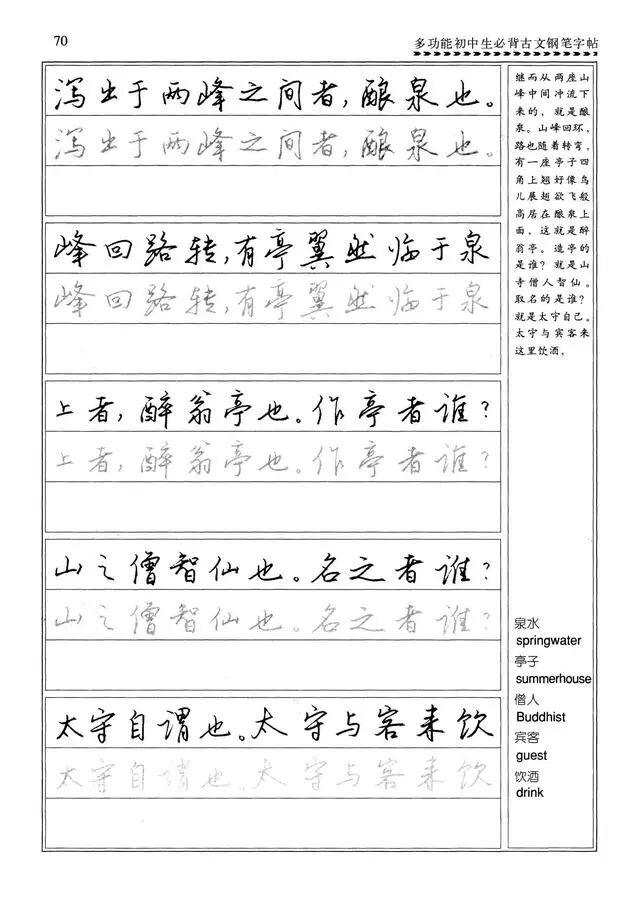 70
多功能初中生必背古文钢笔字帖
泻出于两峰之间者，酿泉也。
泻出于两峰之间者，酿泉也。
峰回路转，有亭翼然临于泉
峰回路转，有亭翼然临于泉
上者，醉翁亭也。作亭者谁？
上者，醉翁亭也。作亭者谁？
山之僧智仙也。名之者谁？
山之僧智仙也。名之者谁？
太守自谓也。太守与客来饮
太守自谓也。太守与客来饮
继而从两座山
峰中间冲流下
来的，就是酿
泉。山峰回环，
路也随着转弯，
有一座亭子四
角上翘好像鸟
儿展翅欲飞般
高居在酿泉上
面，这就是醉
翁亭。造亭的
是谁？就是山
寺僧人智仙。
取名的是谁？
就是太守自己。
太守与宾客来
这里饮酒，
泉水
springwater
亭子
summerhouse
僧人
Buddhist
宾客
guest
饮酒
drink